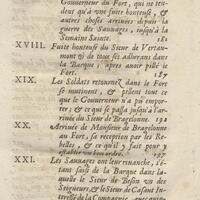 Gouverneur du Fort, qui ne ten-
deut qu'à une fuite honteuse, &
autres choses arrivées depuis la
guerre des Sauvages, jusqu'à la
Semaine Sainte. 181
XVIII. Fuite honteuse du Sieur de Vertau-
mont & de tous ses Adherans dans
la Barque, après avoir pillé le
Fort. 187
XIX. Les Soldats retournez dans le Fort
se mutinent, & pillent tout ce
que le Gouverneur n'a pu empor-
ter; & ce qui se passa jusqu'à l'ar-
rivée du Sieur de Bragelonne. 192
XX. Arrivée de Monsieur de Bragelonne
au Fort, sa reception par les Re-
belles, & ce qu'il y fait pour y
établir un bon ordre. 197
XXI. Les Sauvages ont leur revanche, &
tans saisi de la Barque dans la-
quelle le Sieur du Besson un des
Seigneurs, & le Sieur de Casaut In-
teressé de la Compagnie